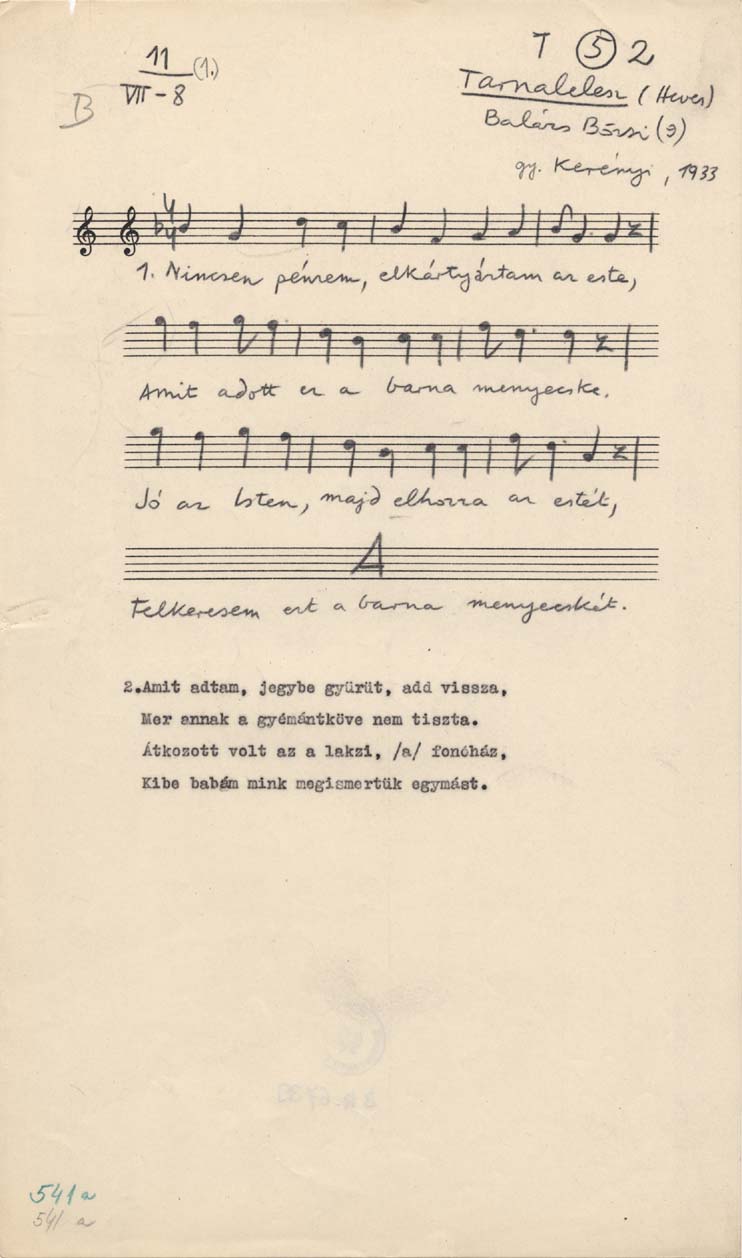 11 (1.)
VII - 8
B
T 5 2
Tarnalelesz (Heves)
Balázs Börzsi (9)
gy. Kerényi, 1933
1. Nincsen pénzem, elkártyáztam az este,
Amit adott ez a barna menyecske.
Jó az Isten, majd elhozza az estét,
A
Felkeresem ezt a barna menyecskét.
2.Amit adtam, jegybe gyürüt, add vissza,
Mer annak a gyémántköve nem tiszta.
Átkozott volt az a lakzi, /a/ fonóház,
Kibe babám mink megismertük egymást.
541 a
541 a